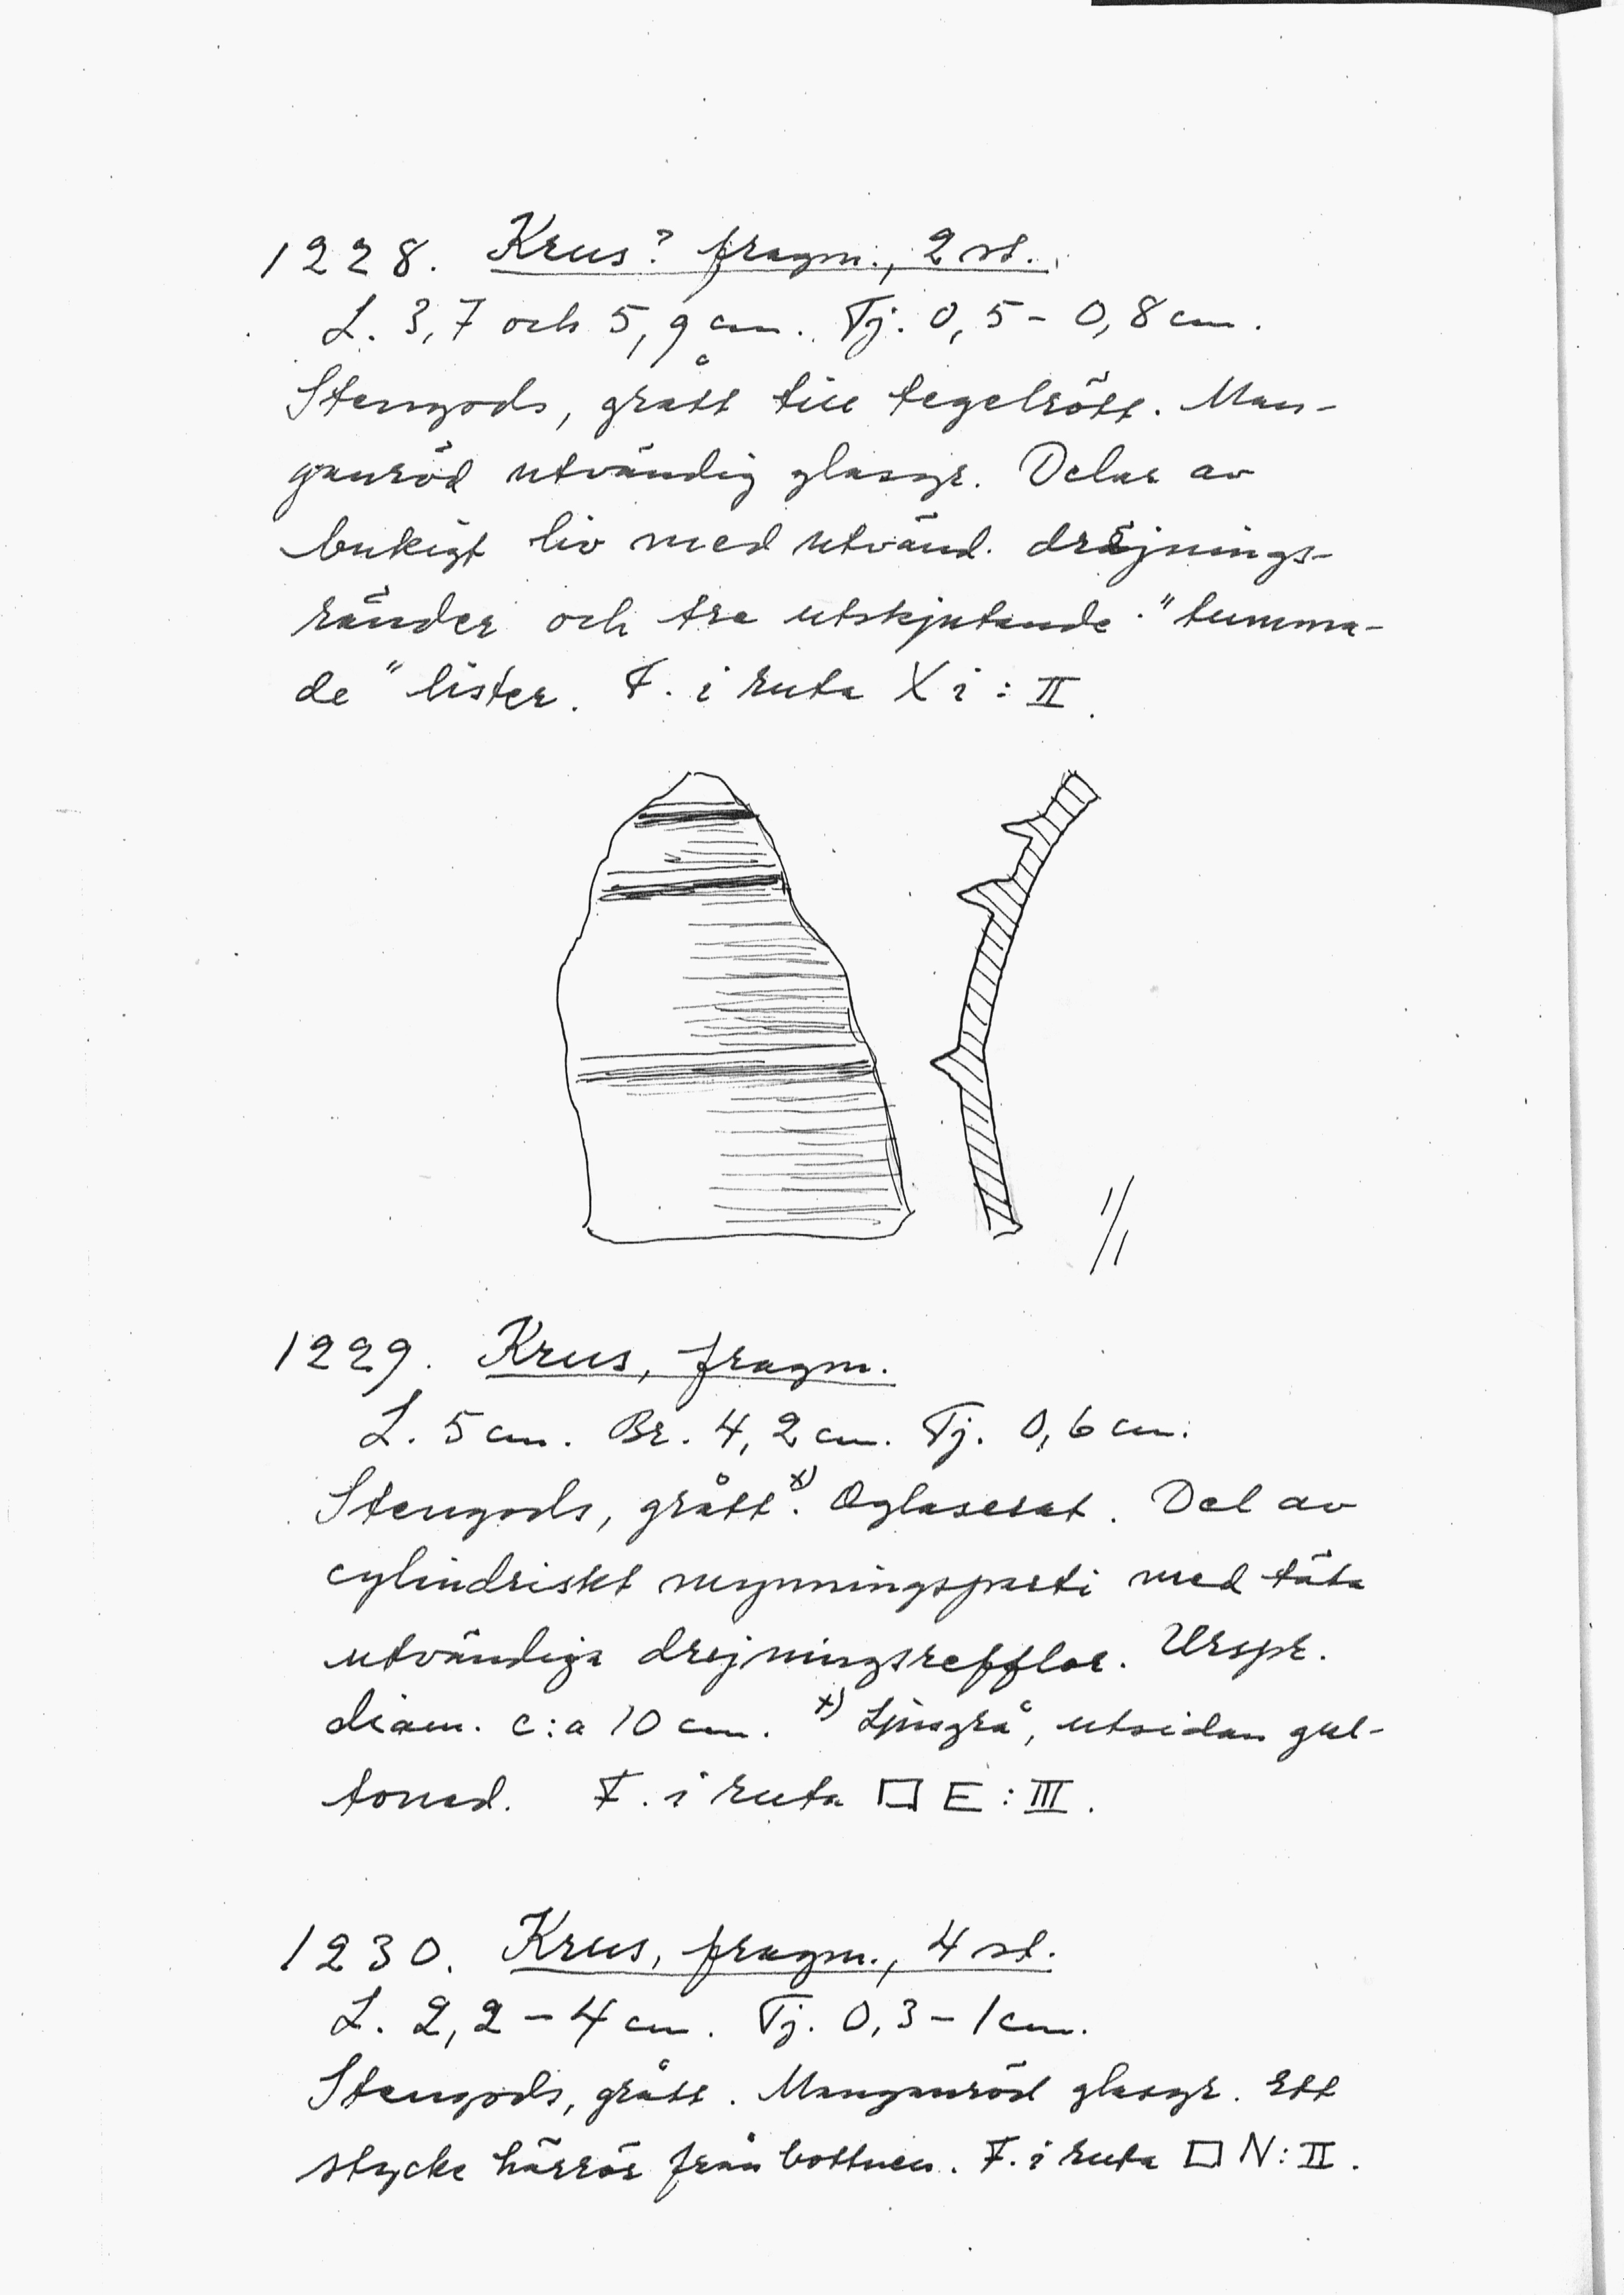 1228. Krus? fragm., 2 st.
L. 3,7 och 5,9 cm. Tj. 0,5 - 0,8 cm.
Stengods, grått till tegelrött. Man-
ganröd utvändig glasyr. Delar av
bukigt liv med utvänd. dräjnings-
ränder och tre utskjutande "tumma-
de" lister. F. i ruta X i : II.
1/1
1229. Krus, fragm.
L. 5 cm. Br. 4,2 cm. Tj. 0,6 cm.
Stengods, grått x). Oglaserat. Del av
cylindriskt mynningsparti med täta
utvändiga drejningsrefflor. Urspr.
diam. c:a 10 cm. x) Ljusgrå, utsidan gul-
tonad. F. i ruta □ E : III.
1230. Krus, fragm., 4 st.
L. 2,2 - 4 cm. Tj. 0,3 - 1 cm.
Stengods, grått. Manganröd glasyr. Ett
stycke härrör från bottnen. F. i ruta □ N: II.